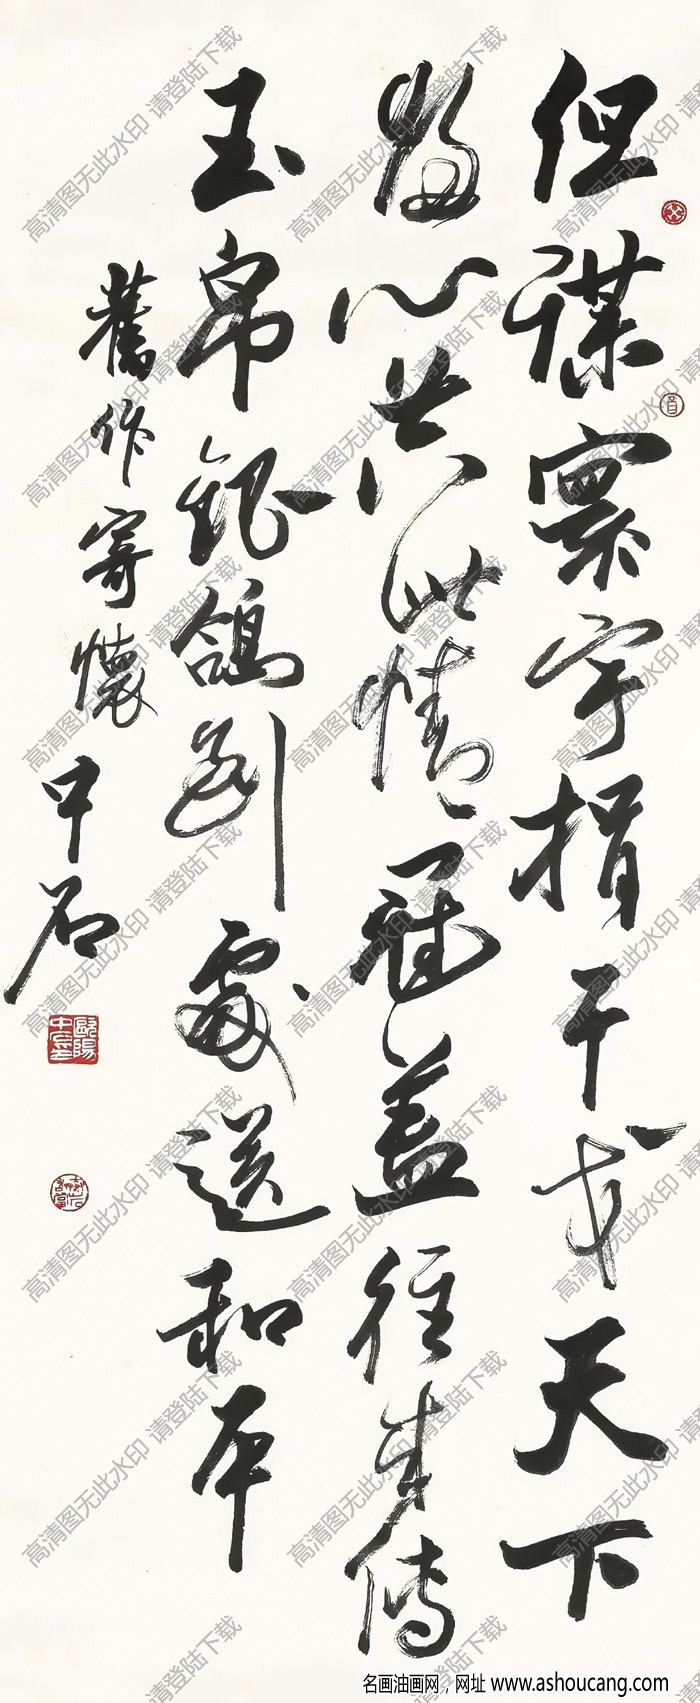 但謀寰宇捐干戈天下
物心共此情冠盖往来傳
玉帛銀鴿到處送和平
舊作寄懷
中石
歐陽中石
高清图无此水印 请登陆下载
名画油画网，网址 www.ashoucang.com